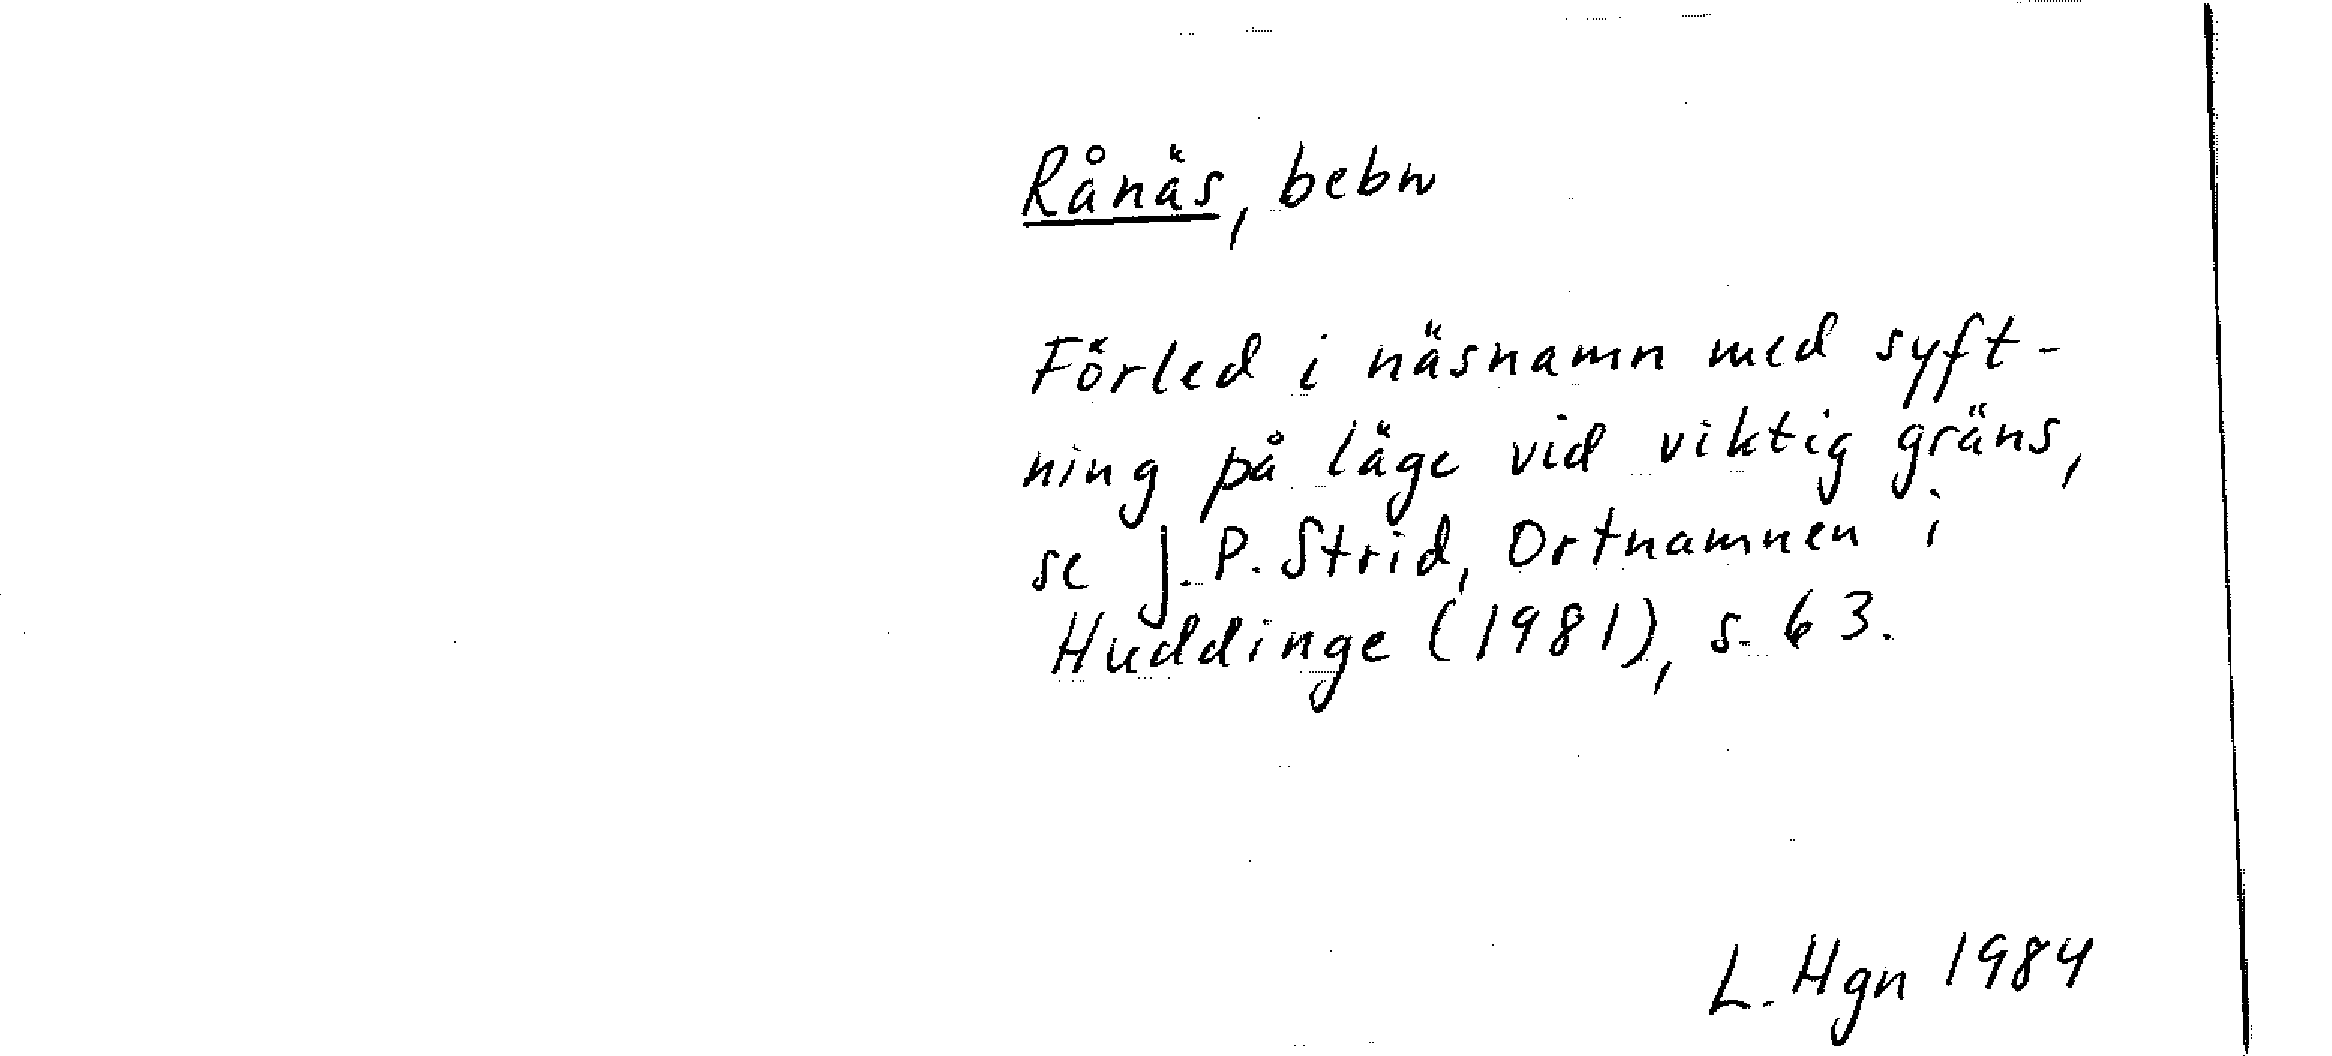 Rånäs, bebn
Förled i näsnamn med syft-
ning på läge vid viktig gräns,
se J. P. Strid, Ortnamnen i
Huddinge (1981), s. 63.
L. Hgn 1984